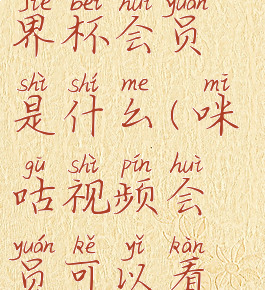 jiè bēi huì yuán
界杯会员
shì shí me mī
是什么(咪
gū shì pín huì
咕视频会
yuán kě yǐ kàn
员可以看